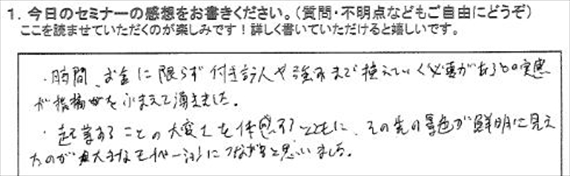 1. 今日のセミナーの感想をお書きください。(質問・不明点などもご自由にどうぞ)
ここを読ませていただくのが楽しみです!詳しく書いていただけると嬉しいです。
・時間、お金に限らず付き合う人や まで換えていく必要がある 実感
が をふまえて湧きました。
・起業することの大変さを体感するとともに、その先の景色が鮮明に見え
たのが大きなモチベーションにつながると思いました。